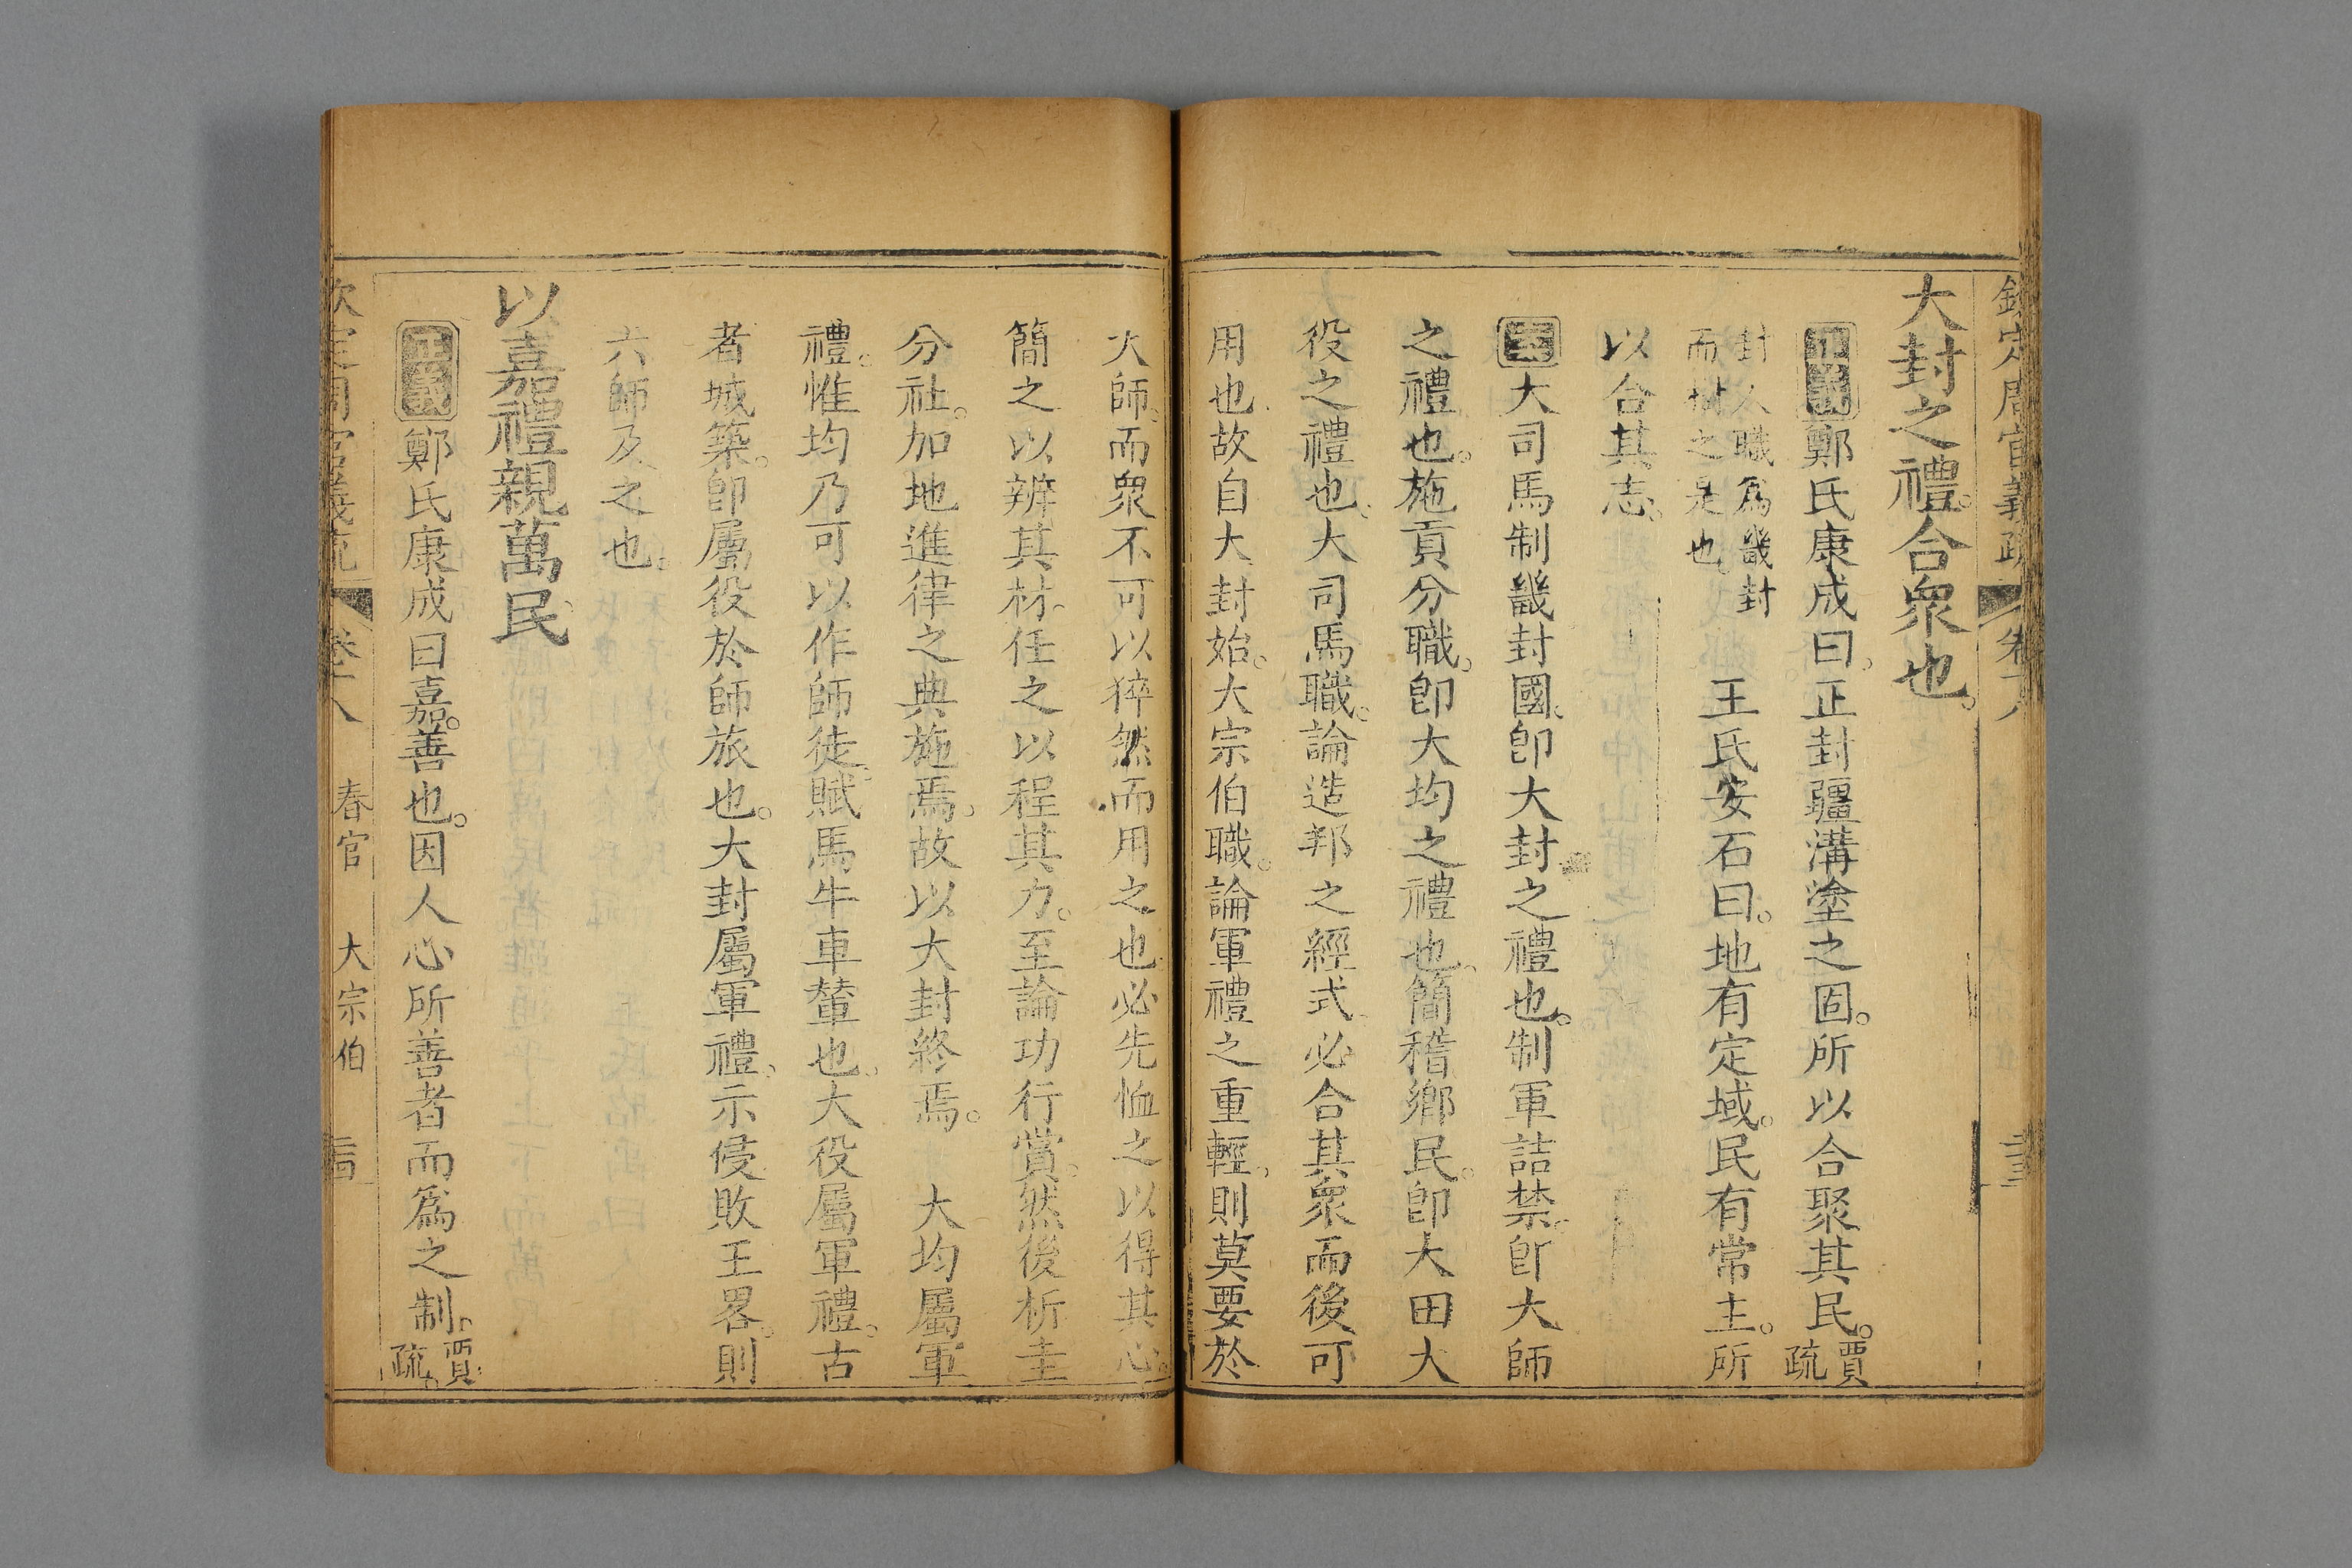 欽定周官義疏 卷十八 二三
大封之禮。合衆也。
正義鄭氏康成曰。正封疆溝塗之固。所以合聚其民。賈疏
封人職爲畿封而樹之是也。 王氏安石曰。地有定域。民有常主。所
以合其志。
案大司馬制畿封國。卽大封之禮也。制軍詰禁。卽大師
之禮也。施貢分職。卽大均之禮也。簡稽鄉民。卽大田大
役之禮也。大司馬職。論造邦之經式。必合其衆而後可
用也。故自大封始。大宗伯職。論軍禮之重輕。則莫要於
大師。而衆不可以猝然而用之也。必先恤之以得其心。
簡之以辨其材。任之以程其力。至論功行賞。然後析圭
分社。加地進律之典施焉。故以大封終焉。 大均屬軍
禮。惟均乃可以作師徒。賦馬牛車輦也。大役屬軍禮。古
者城築。卽屬役於師旅也。大封屬軍禮。示侵敗王畧。則
六師及之也。
以嘉禮親萬民。
正義鄭氏康成曰嘉。善也。因人心所善者而爲之制。賈疏。
欽定周官義疏 卷十八 春官 大宗伯